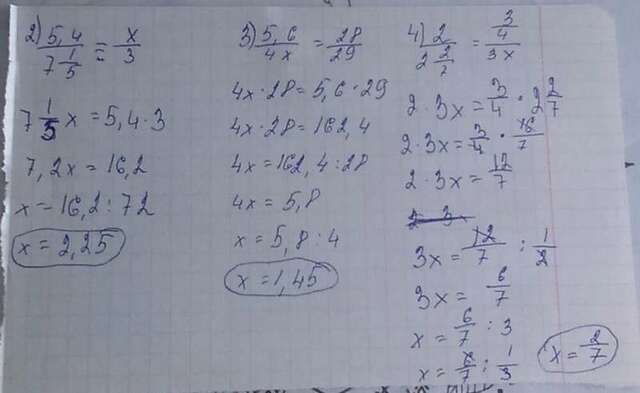 2) 5,4 / 7 1/5 = x/3
7 1/5 x = 5,4·3
7,2x = 16,2
x = 16,2 : 72
x = 2,25
3) 5,6 / 4x = 28/29
4x·28 = 5,6·29
4x·28 = 162,4
4x = 162,4 : 28
4x = 5,8
x = 5,8 : 4
x = 1,45
4) 2 / 2 2/7 = 3/4 / 3x
2·3x = 3/4 · 2 2/7
2·3x = 3/4 · 16/7
2·3x = 12/7
3x = 12/7 : 1/2
3x = 6/7
x = 6/7 : 3
x = 6/7 : 1/3
x = 2/7